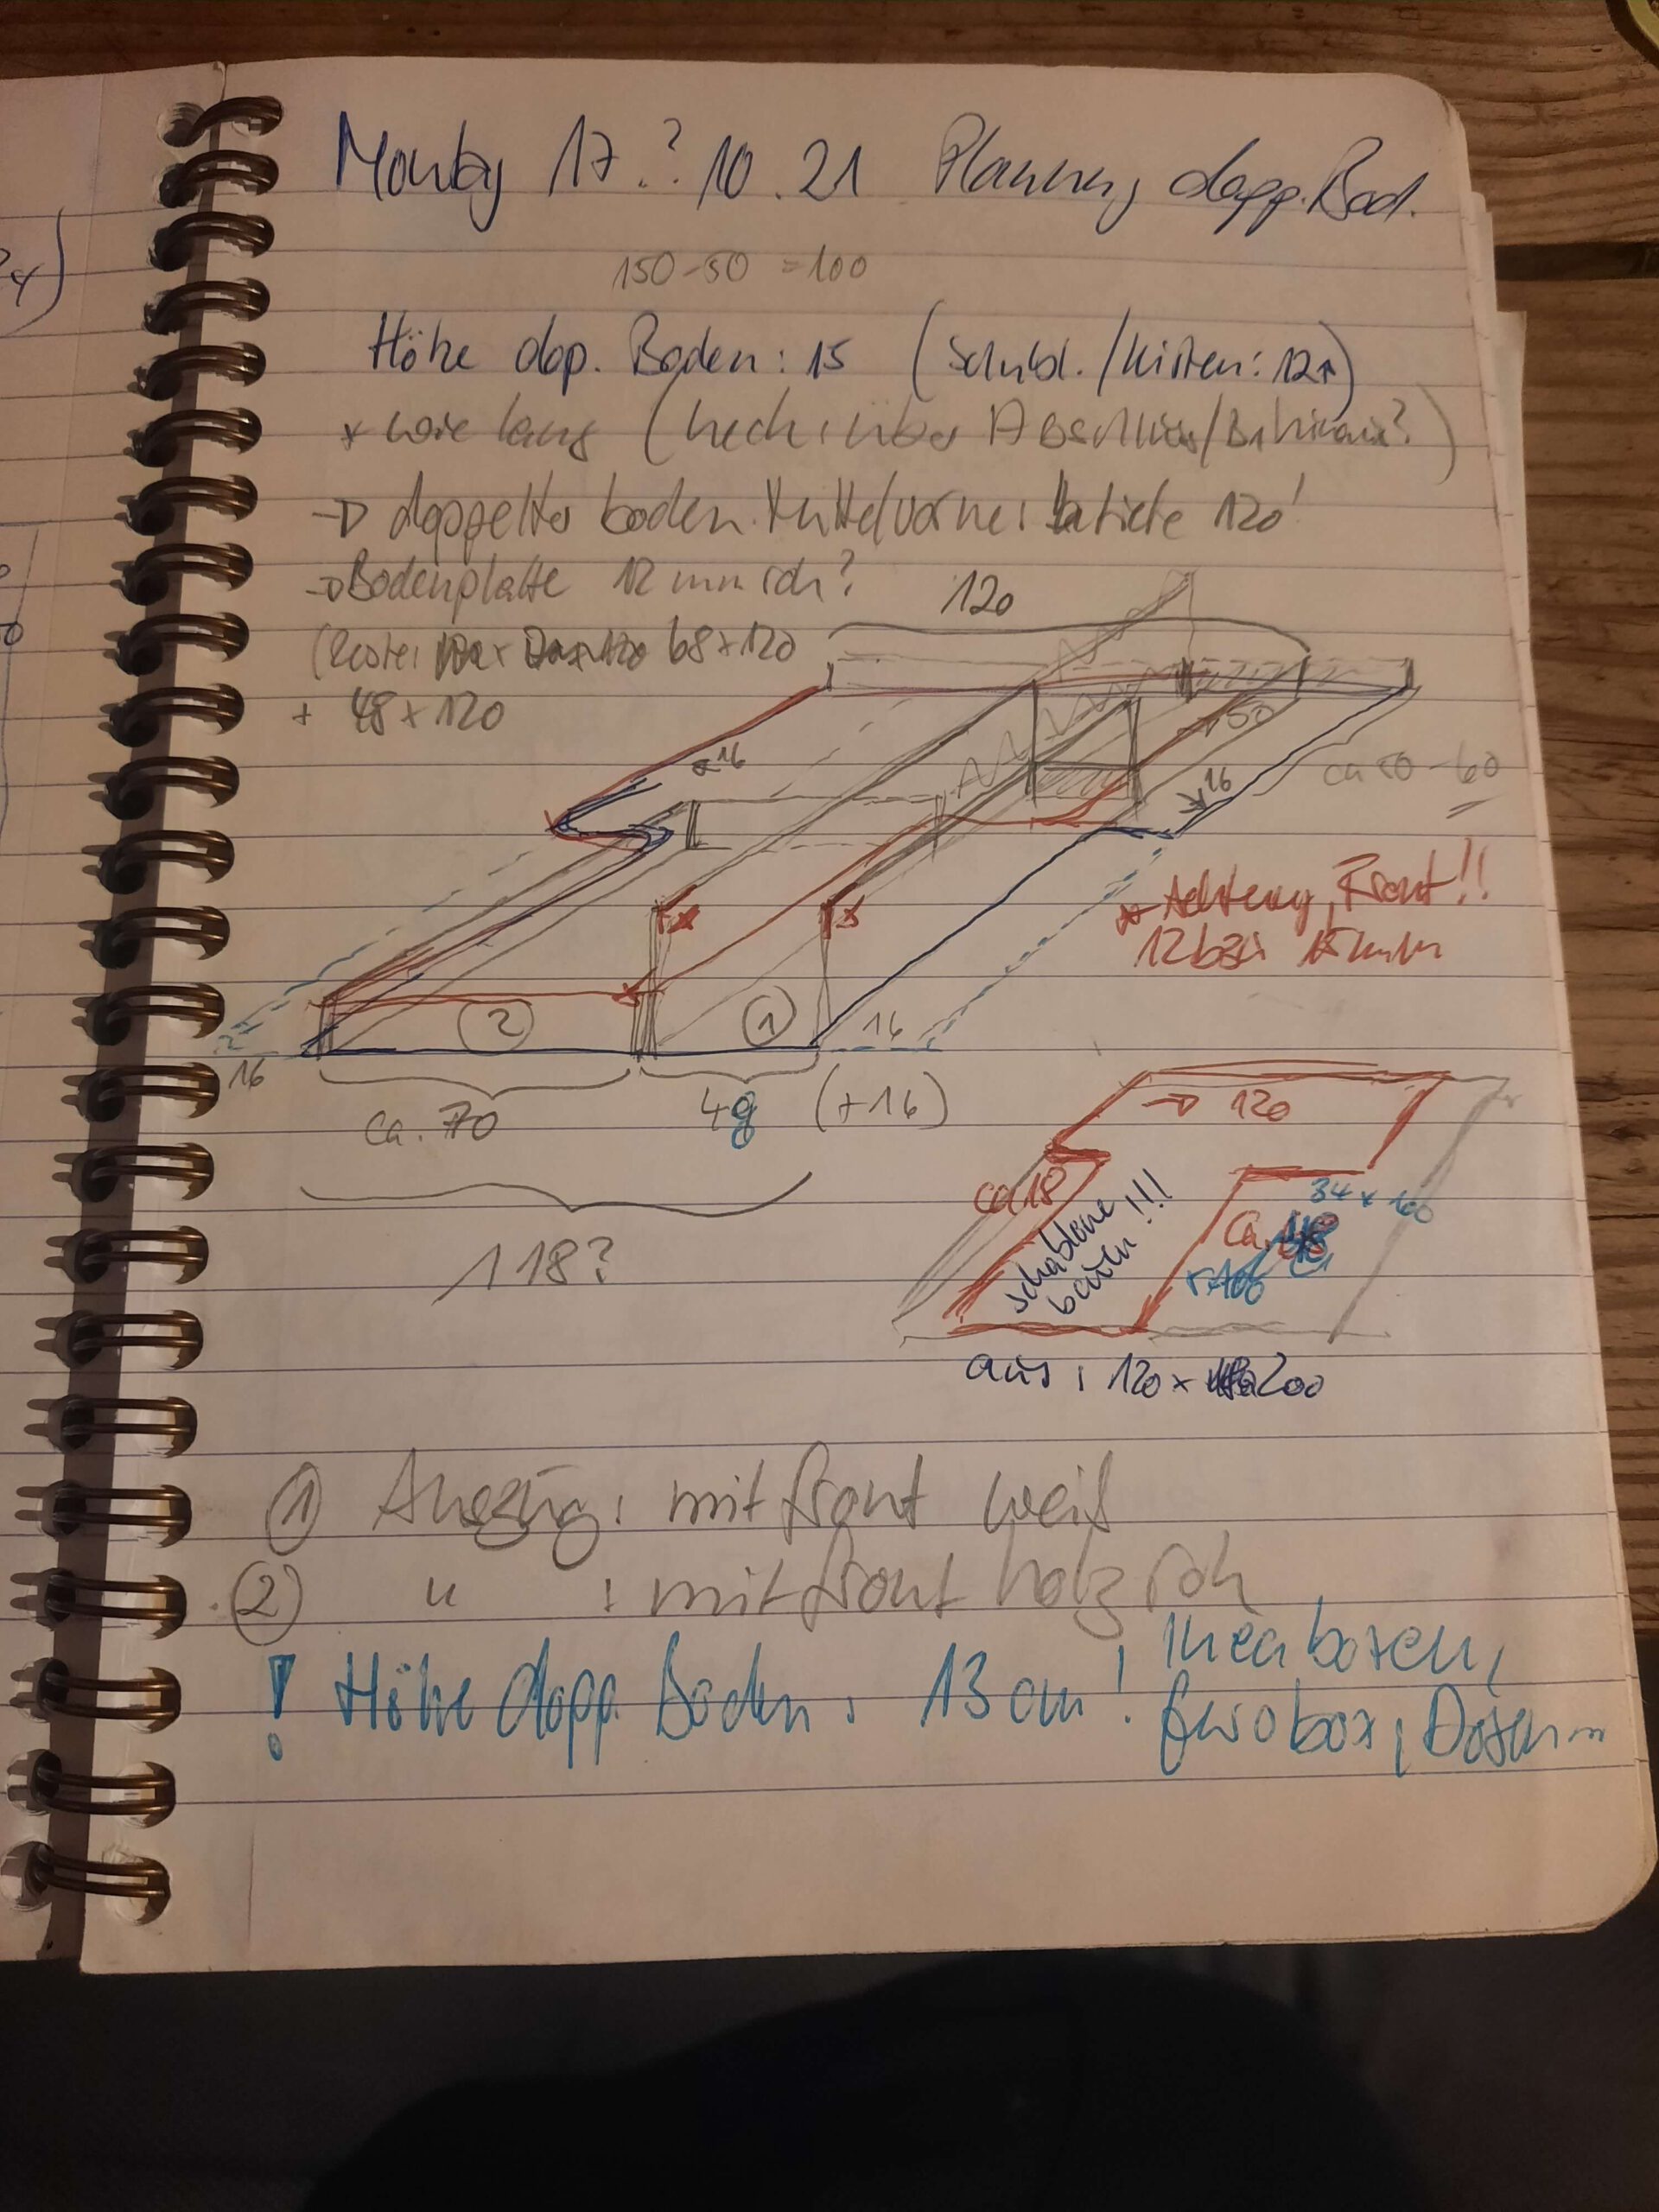 Montag 17.? 10.21 Planung dopp. Bod.
150-50 = 100
Höhe dop. Boden: 15 (Schubl./Kisten: 12
* wie lang (hech: über
→ doppelter boden Mitte/vorne: 120!
→ Bodenplatte 12 mm roh?
(Reste: 68x120
+ 48x120
120
16
50
16
ca 50-60
* Achtung, Front!!
12 bzw 15mm
2
1
16
16
ca. 70
49
(+16)
118?
→ 120
ca 18
Schablone
bauen!!!
34 x 100
Ca.
aus: 120 x 200
① Auszug: mit front weiß
② " : mit front holz roh
! Höhe dopp. Boden: 13 cm! Ikea boxen,
Eurobox, Dosen...